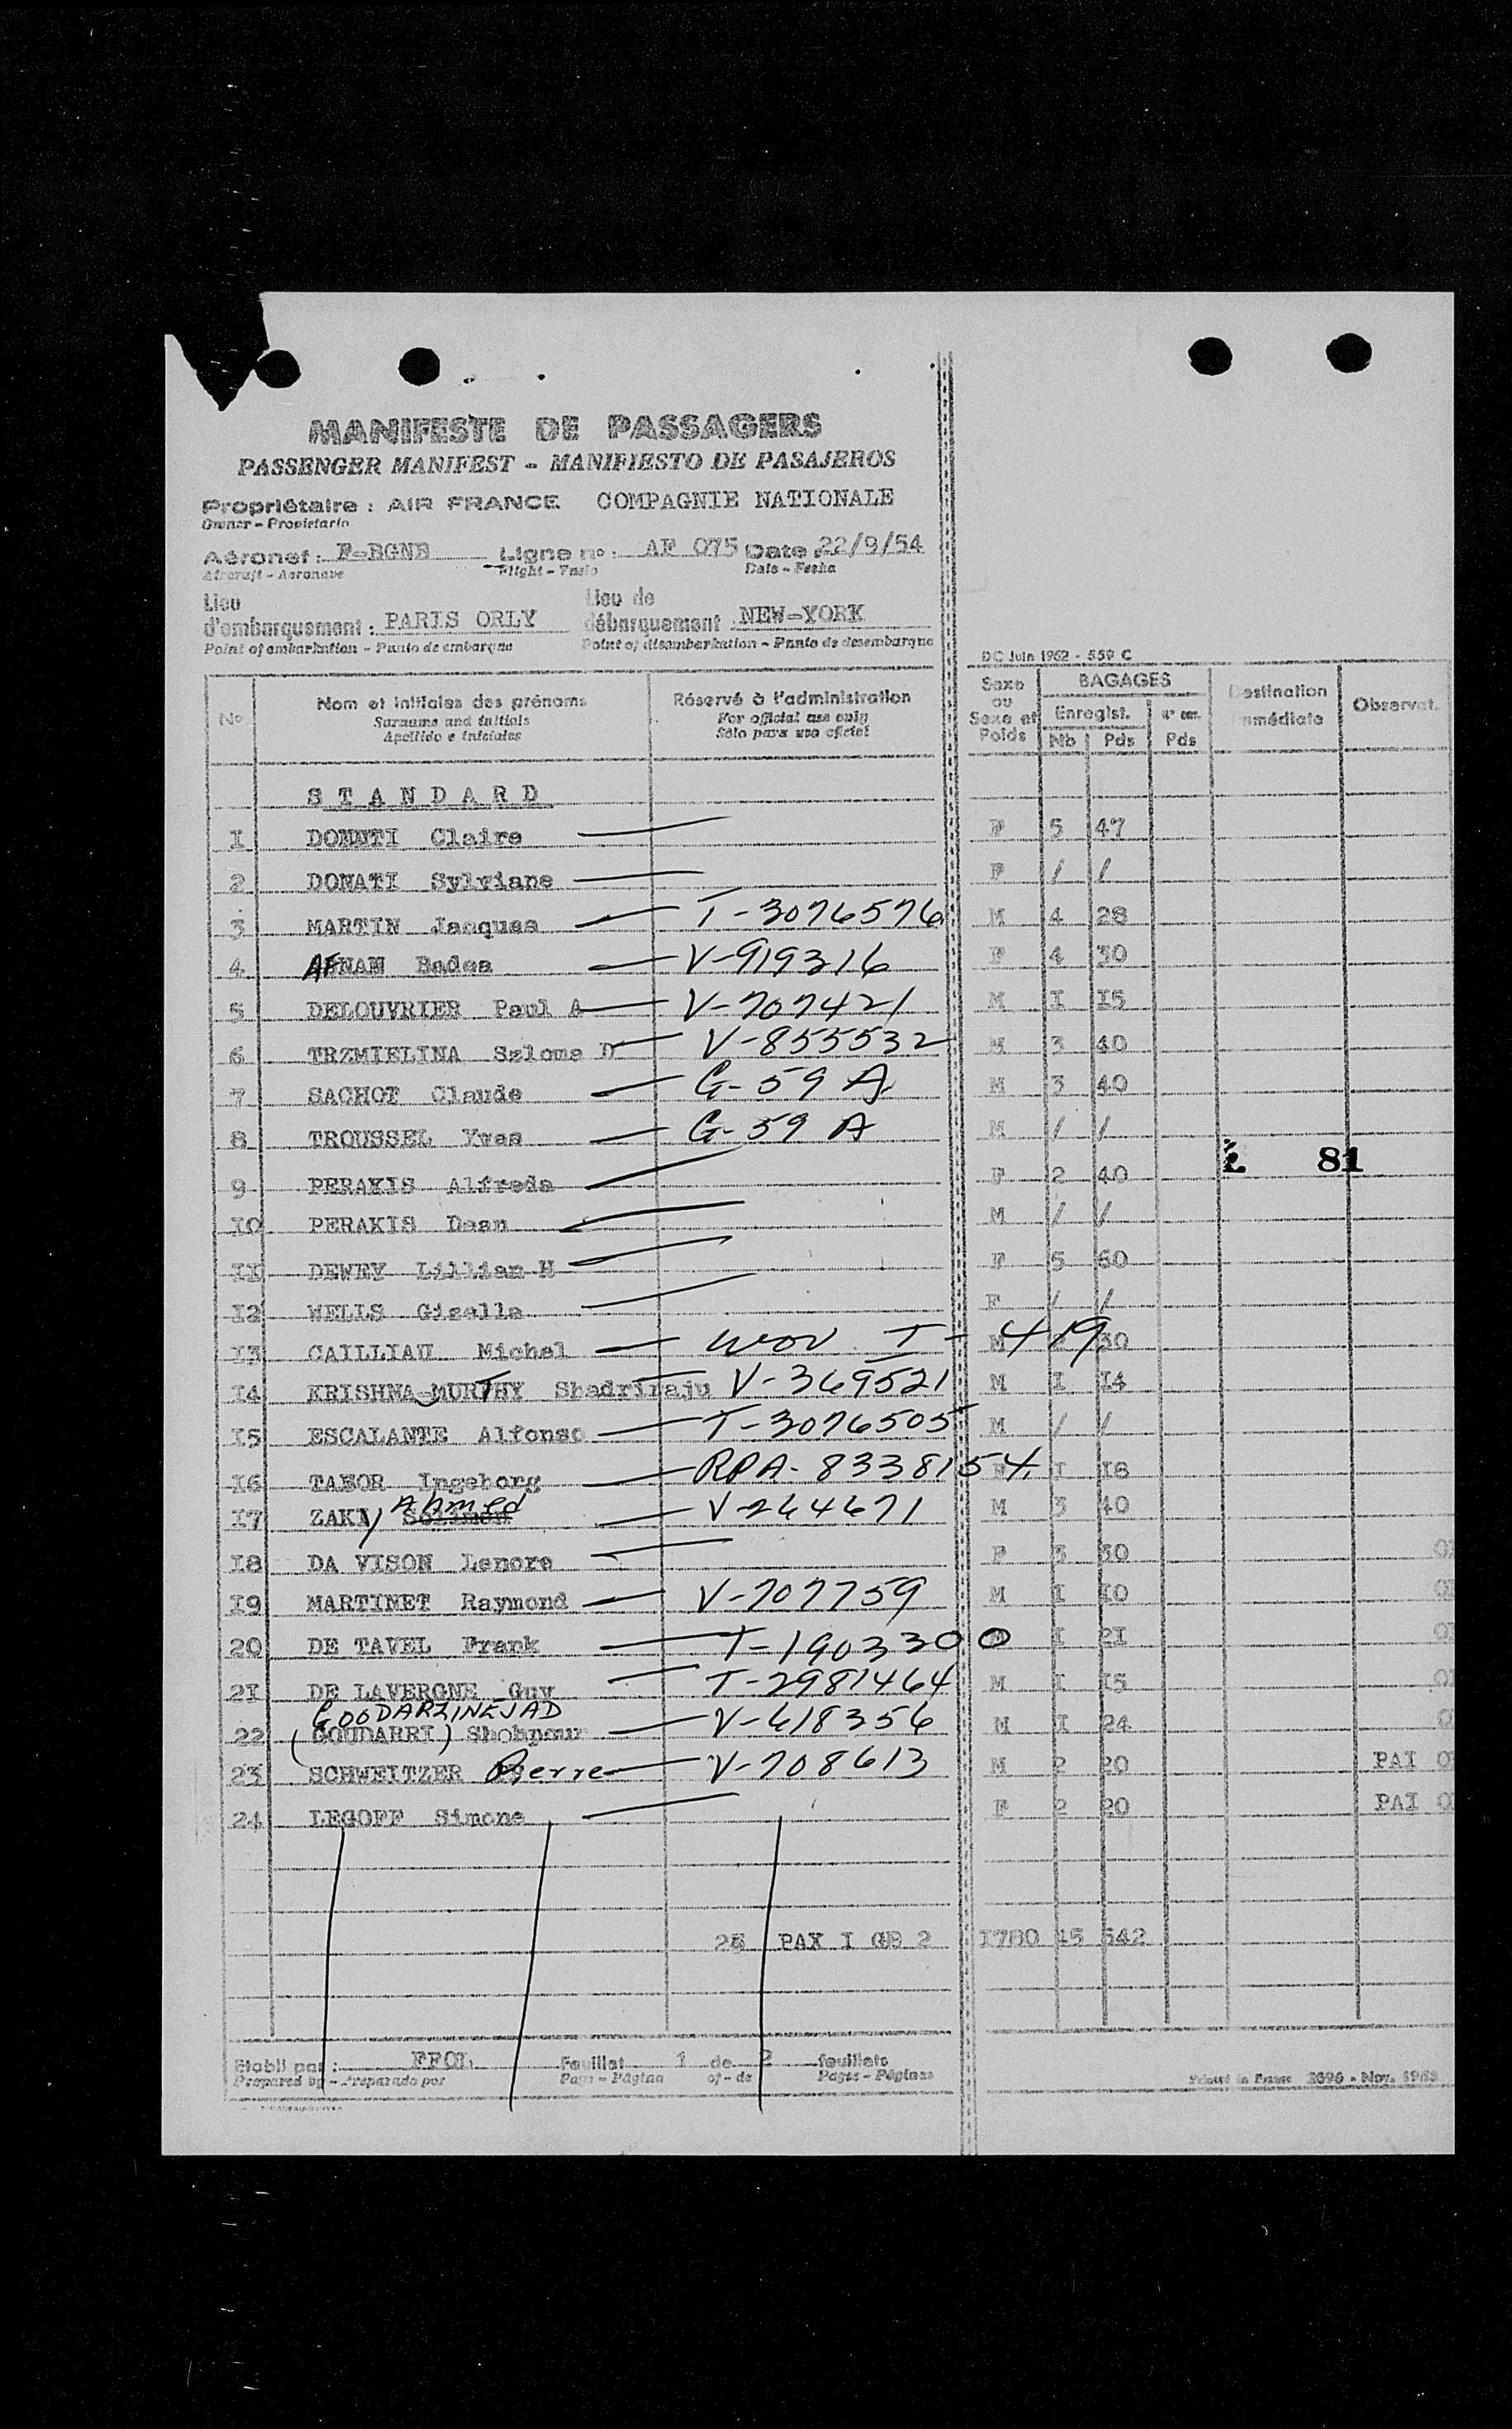 MANIFESTE DE PASSAGERS
PASSENGER MANIFEST - MANIFIESTO DE PASAJEROS
Propriétaire : AIR FRANCE COMPAGNIE NATIONALE
Owner - Propietario
Aéronef : F-BGNE Ligne no : AF 075 Date : 22/9/54
Aircraft - Aeronave Flight - Date - Fecha
Lieu d'embarquement : PARIS ORLY Lieu de débarquement : NEW-YORK
Point of embarkation - Punto de embarque Point of disembarkation - Punto de desembarque
DC Juin 1952 - 559 C
No Nom et initiales des prénoms Réservé à l'administration Sexe ou Sexe et Poids BAGAGES Destination immédiate Observat.
Surname and initials For official use only Enregist.
Apellido e iniciales Sólo para uso oficial Nb Pds Pds
STANDARD
1 DONATI Claire F 5 47
2 DONATI Sylviane F / /
3 MARTIN Jacques T-3076576 M 4 28
4 AFNAN Badea V-919316 F 4 30
5 DELOUVRIER Paul A V-707421 M I I5
6 TRZMIELINA Szloma D V-855532 M 3 40
7 SACHOT Claude G-59 A M 3 40
8 TROUSSEL Yves G-59 A M / /
81
9 PERAKIS Alfreda F 2 40
IO PERAKIS Dean M / /
II DEWEY Lillian H F 5 60
I2 WELLS Giselle F / /
I3 CAILLIAU Michel WOV T-419 M 30
I4 KRISHNA-MURTHY Shadriraju V-369521 M I I4
I5 ESCALANTE Alfonso T-3076505 M / /
I6 TABOR Ingeborg RPA-8338154 F I I8
I7 ZAKI, Soliman Ahmed V-264671 M 3 40
I8 DA VISON Lenore F 3 30
I9 MARTINET Raymond V-707759 M I IO
20 DE TAVEL Frank T-1903300 M I 2I
2I DE LAVERGNE Guy T-2981464 M I I5
GOODARZINEJAD
22 (GOUDARRI) Shohpour V-618356 M I 24
23 SCHWEITZER Pierre V-708613 M 2 20 PAI
24 LEGOFF Simone F 2 20 PAI
PAX I GB 2 I780 45 542
Etabli par : FFOL Feuillet 1 de 2 feuillets
Prepared by - Preparado por Page - Página of - de Pages - Páginas
Printed in France 2696 - Nov. 1953